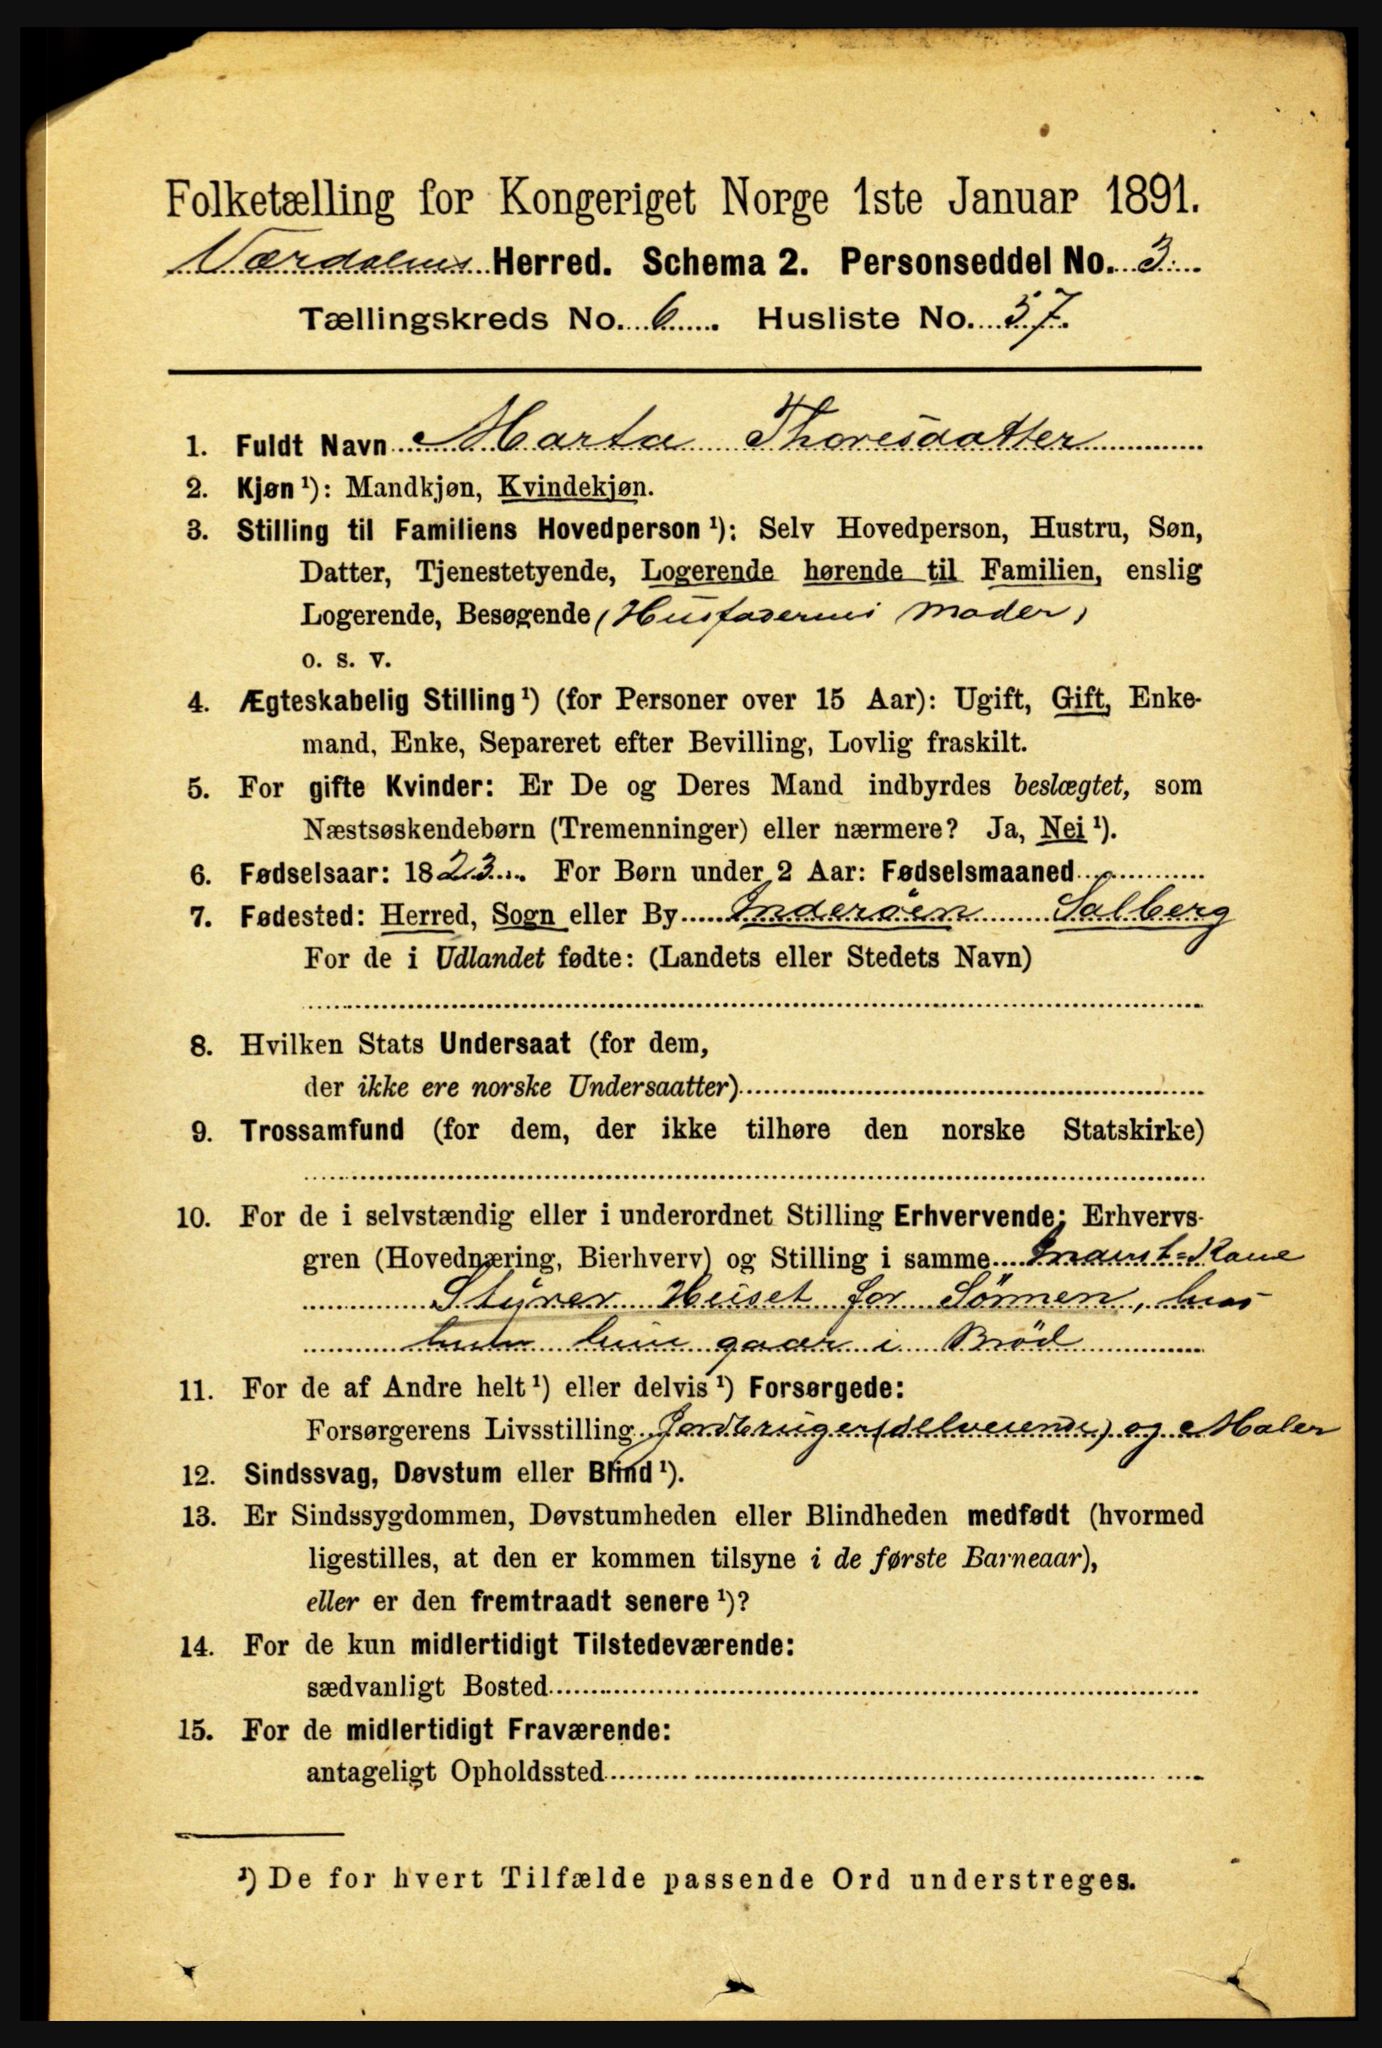 Folketælling for Kongeriget Norge 1ste Januar 1891.
Værdalens Herred. Schema 2. Personseddel No. 3
Tællingskreds No. 6. Husliste No. 37.
1. Fuldt Navn Marta Thoresdatter
2. Kjøn ¹): Mandkjøn, Kvindekjøn.
3. Stilling til Familiens Hovedperson ¹): Selv Hovedperson, Hustru, Søn,
Datter, Tjenestetyende, Logerende hørende til Familien, enslig
Logerende, Besøgende (Husfaderens Moder)
o. s. v.
4. Ægteskabelig Stilling ¹) (for Personer over 15 Aar): Ugift, Gift, Enke-
mand, Enke, Separeret efter Bevilling, Lovlig fraskilt.
5. For gifte Kvinder: Er De og Deres Mand indbyrdes beslægtet, som
Næstsøskendebørn (Tremenninger) eller nærmere? Ja, Nei ¹).
6. Fødselsaar: 1823. For Børn under 2 Aar: Fødselsmaaned
7. Fødested: Herred, Sogn eller By Inderøen Salberg
For de i Udlandet fødte: (Landets eller Stedets Navn)
8. Hvilken Stats Undersaat (for dem,
der ikke ere norske Undersaatter)
9. Trossamfund (for dem, der ikke tilhøre den norske Statskirke)
10. For de i selvstændig eller i underordnet Stilling Erhvervende: Erhvervs-
gren (Hovednæring, Bierhverv) og Stilling i samme Inderst-Kone
Styrer Huset for Sønnen, hos
hvem hun gaar i Brød
11. For de af Andre helt ¹) eller delvis ¹) Forsørgede:
Forsørgerens Livsstilling Jordbruger (selveiende) og Maler
12. Sindssvag, Døvstum eller Blind ¹).
13. Er Sindssygdommen, Døvstumheden eller Blindheden medfødt (hvormed
ligestilles, at den er kommen tilsyne i de første Barneaar),
eller er den fremtraadt senere ¹)?
14. For de kun midlertidigt Tilstedeværende:
sædvanligt Bosted
15. For de midlertidigt Fraværende:
antageligt Opholdssted
¹) De for hvert Tilfælde passende Ord understreges.